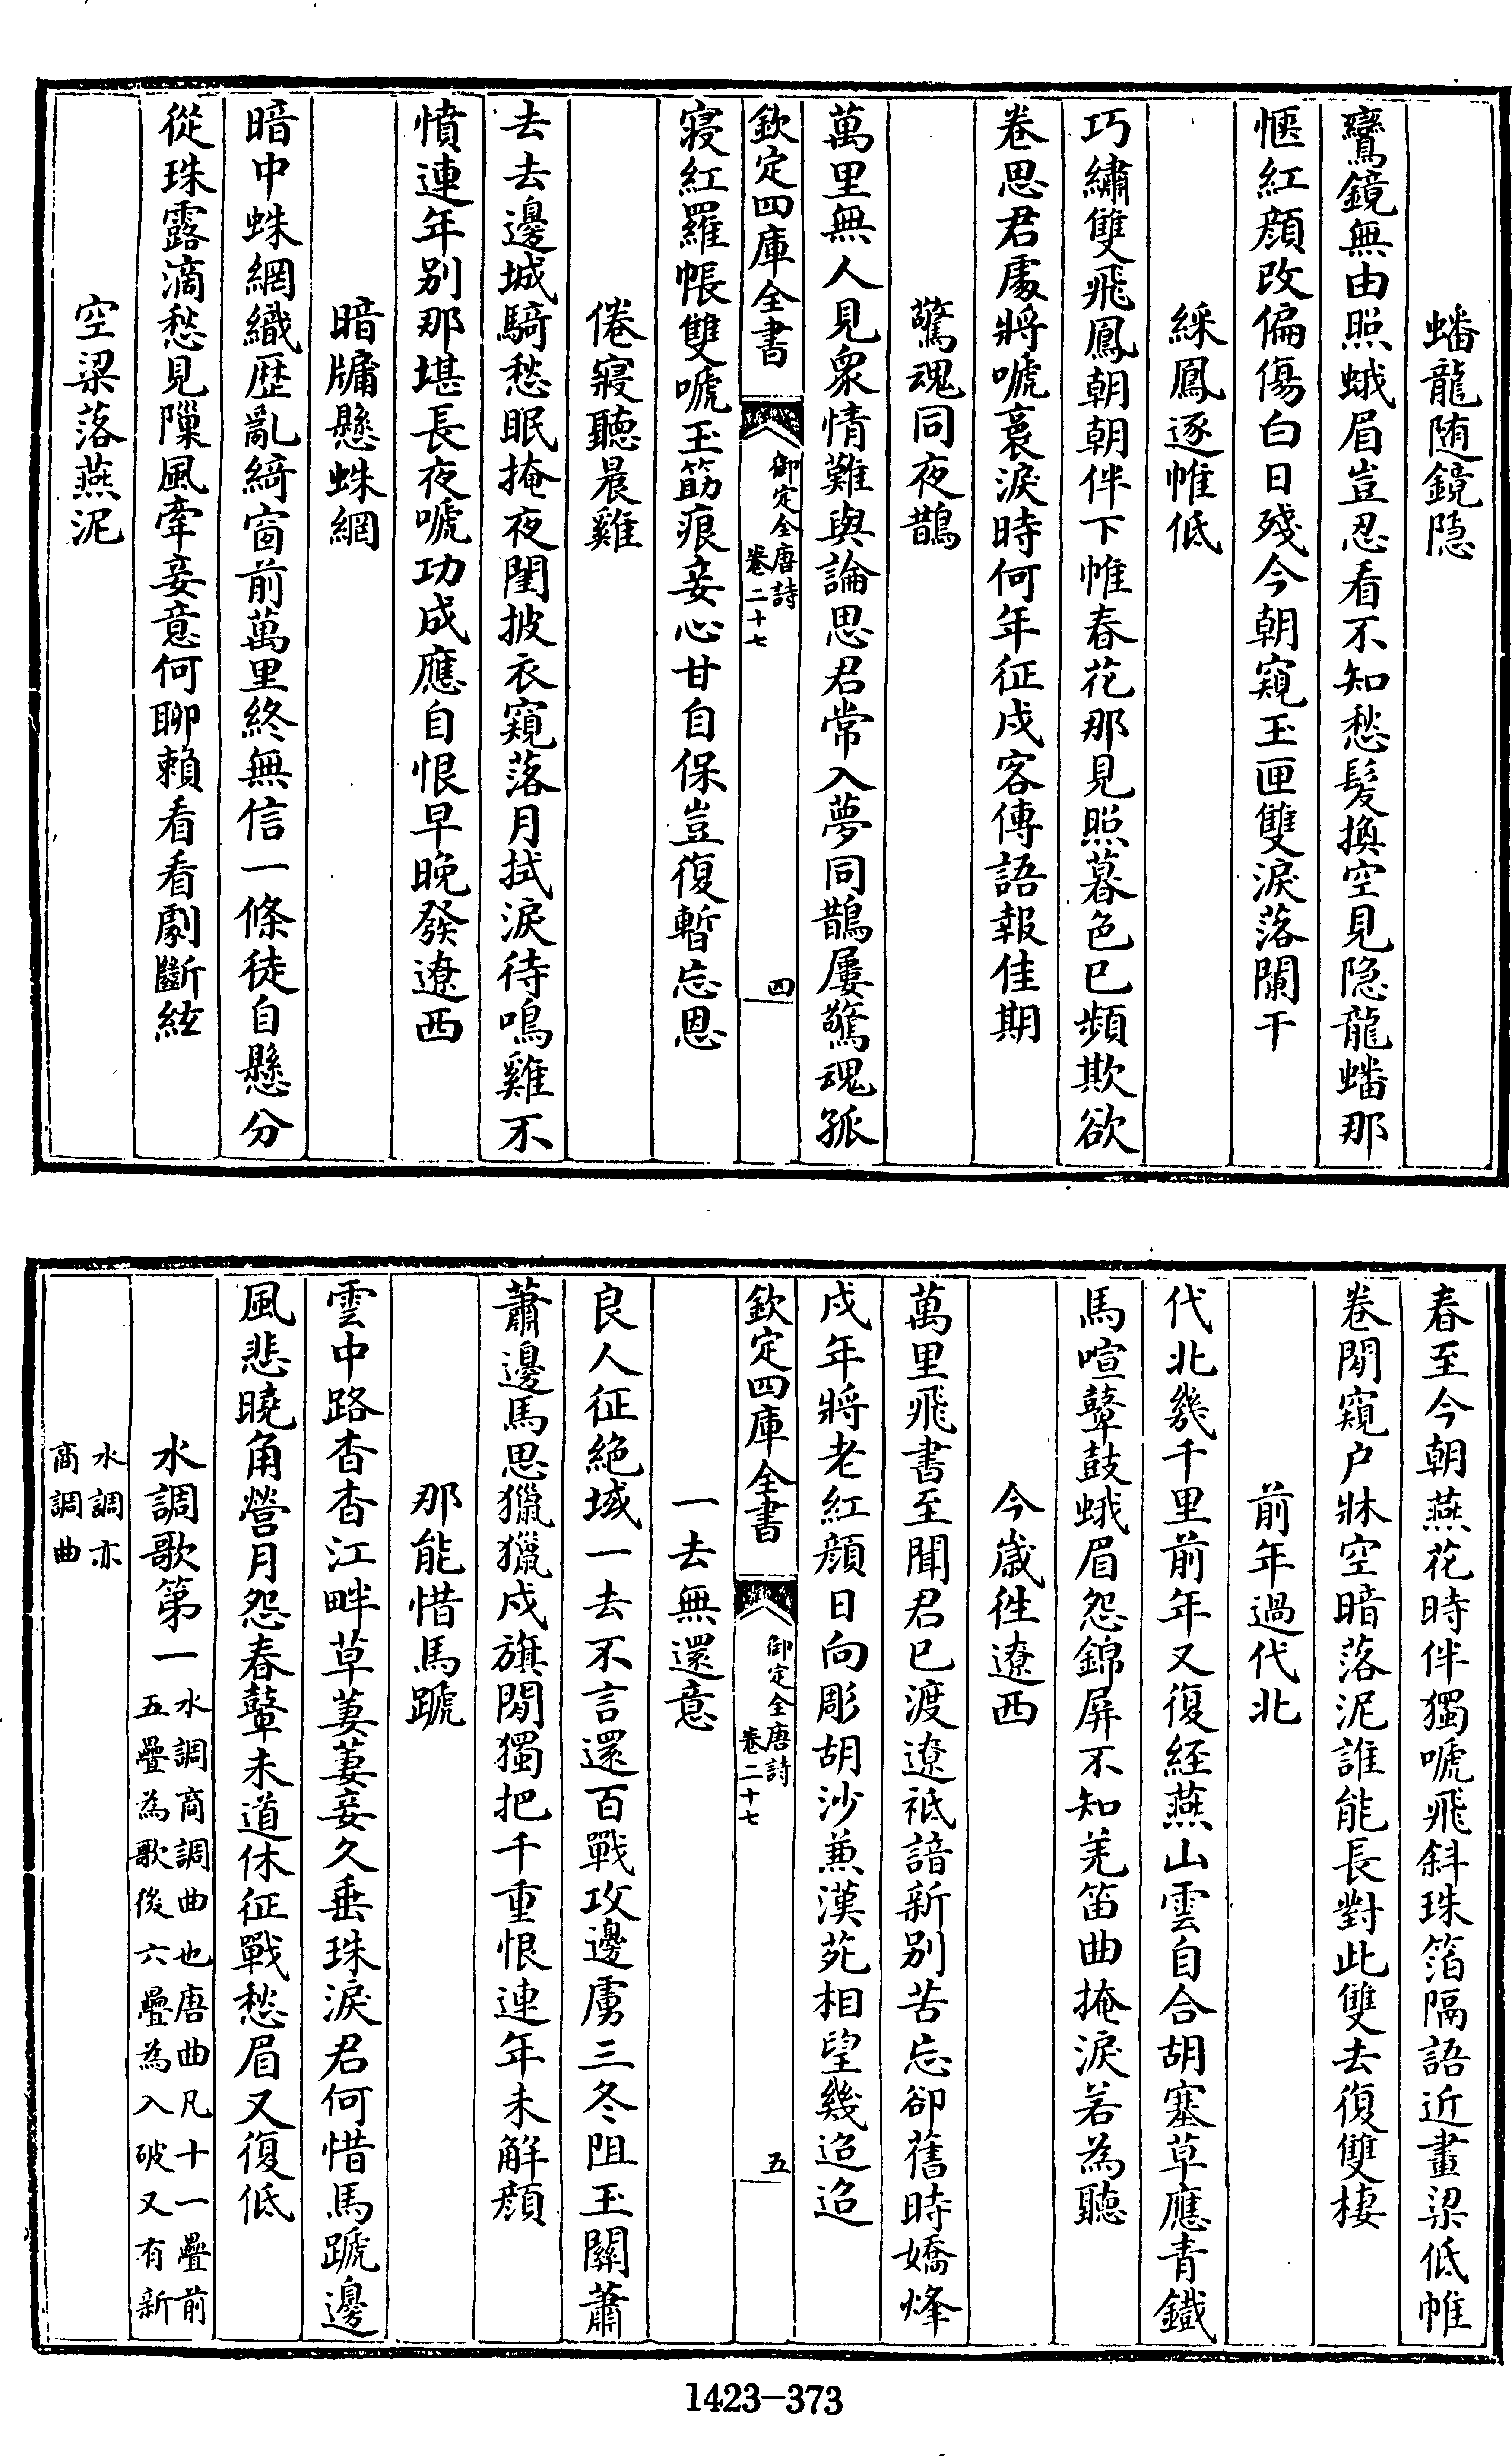 蟠龍随鏡隠
鸞鏡無由照蛾眉豈忍看不知愁髪換空見隠龍蟠那
愜紅顔改偏傷白日殘今朝窺玉匣雙淚落闌干
綵鳳逐帷低
巧繡雙飛鳳朝朝伴下帷春花那見照暮色已頻欺欲
卷思君處將嗁裛淚時何年征戍客傳語報佳期
驚魂同夜鵲
萬里無人見衆情難與論思君常入夢同鵲屢驚魂孤
欽定四庫全書
御定全唐詩
卷二十七
四
寢紅羅帳雙嗁玉筯痕妾心甘自保豈復暫忘恩
倦寢聽晨雞
去去邊城騎愁眠掩夜閨披衣窺落月拭淚待鳴雞不
憤連年别那堪長夜嗁功成應自恨早晚發遼西
暗牖懸蛛網
暗中蛛網織歴亂綺窗前萬里終無信一條徒自懸分
從珠露滴愁見隟風牽妾意何聊賴看看劇斷絃
空梁落燕泥
春至今朝燕花時伴獨嗁飛斜珠箔隔語近畫梁低帷
卷閒窺户牀空暗落泥誰能長對此雙去復雙棲
前年過代北
代北幾千里前年又復經燕山雲自合胡塞草應青鐵
馬喧鼙鼓蛾眉怨錦屏不知羌笛曲掩淚若為聽
今歲往遼西
萬里飛書至聞君已渡遼祇諳新别苦忘卻舊時嬌烽
戍年將老紅顔日向彫胡沙兼漢苑相望幾迢迢
欽定四庫全書
御定全唐詩
卷二十七
五
一去無還意
良人征絶域一去不言還百戰攻邊虜三冬阻玉關蕭
蕭邊馬思獵獵戍旗閒獨把千重恨連年未解顔
那能惜馬蹏
雲中路杳杳江畔草萋萋妾久垂珠淚君何惜馬蹏邊
風悲曉角營月怨春鼙未道休征戰愁眉又復低
水調歌第一
水調商調曲也唐曲凡十一疊前
五疊為歌後六疊為入破又有新
水調亦
商調曲
1423-373